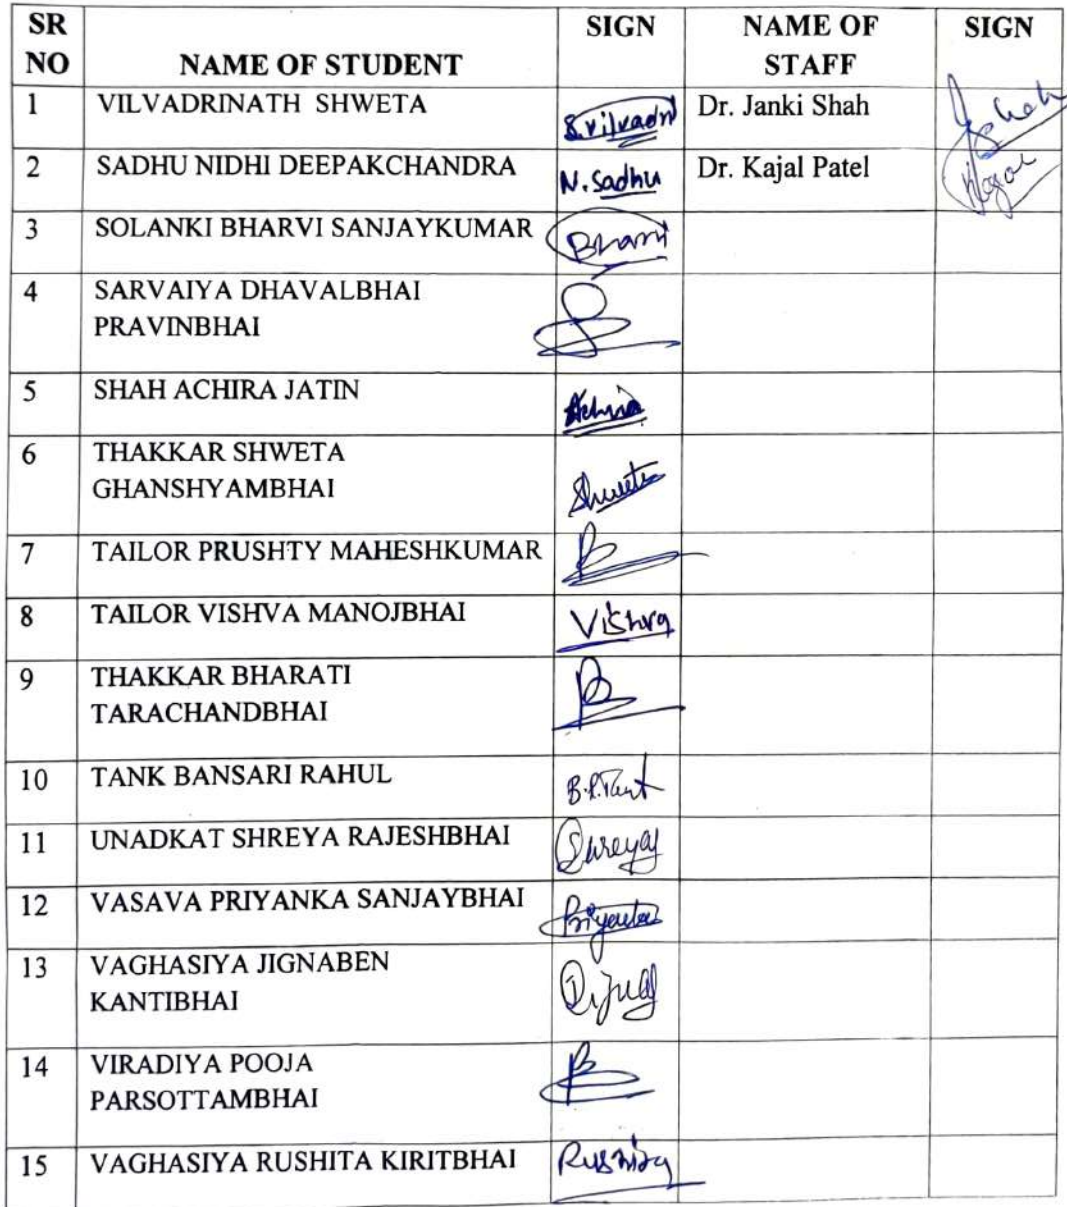 SR NO NAME OF STUDENT SIGN NAME OF STAFF SIGN
1 VILVADRINATH SHWETA S.Vilvadri Dr. Janki Shah
2 SADHU NIDHI DEEPAKCHANDRA N. Sadhu Dr. Kajal Patel
3 SOLANKI BHARVI SANJAYKUMAR
4 SARVAIYA DHAVALBHAI
PRAVINBHAI
5 SHAH ACHIRA JATIN
6 THAKKAR SHWETA
GHANSHYAMBHAI
7 TAILOR PRUSHTY MAHESHKUMAR
8 TAILOR VISHVA MANOJBHAI Vishva
9 THAKKAR BHARATI
TARACHANDBHAI
10 TANK BANSARI RAHUL B.R.Tank
11 UNADKAT SHREYA RAJESHBHAI
12 VASAVA PRIYANKA SANJAYBHAI Priyanka
13 VAGHASIYA JIGNABEN
KANTIBHAI
14 VIRADIYA POOJA
PARSOTTAMBHAI
15 VAGHASIYA RUSHITA KIRITBHAI